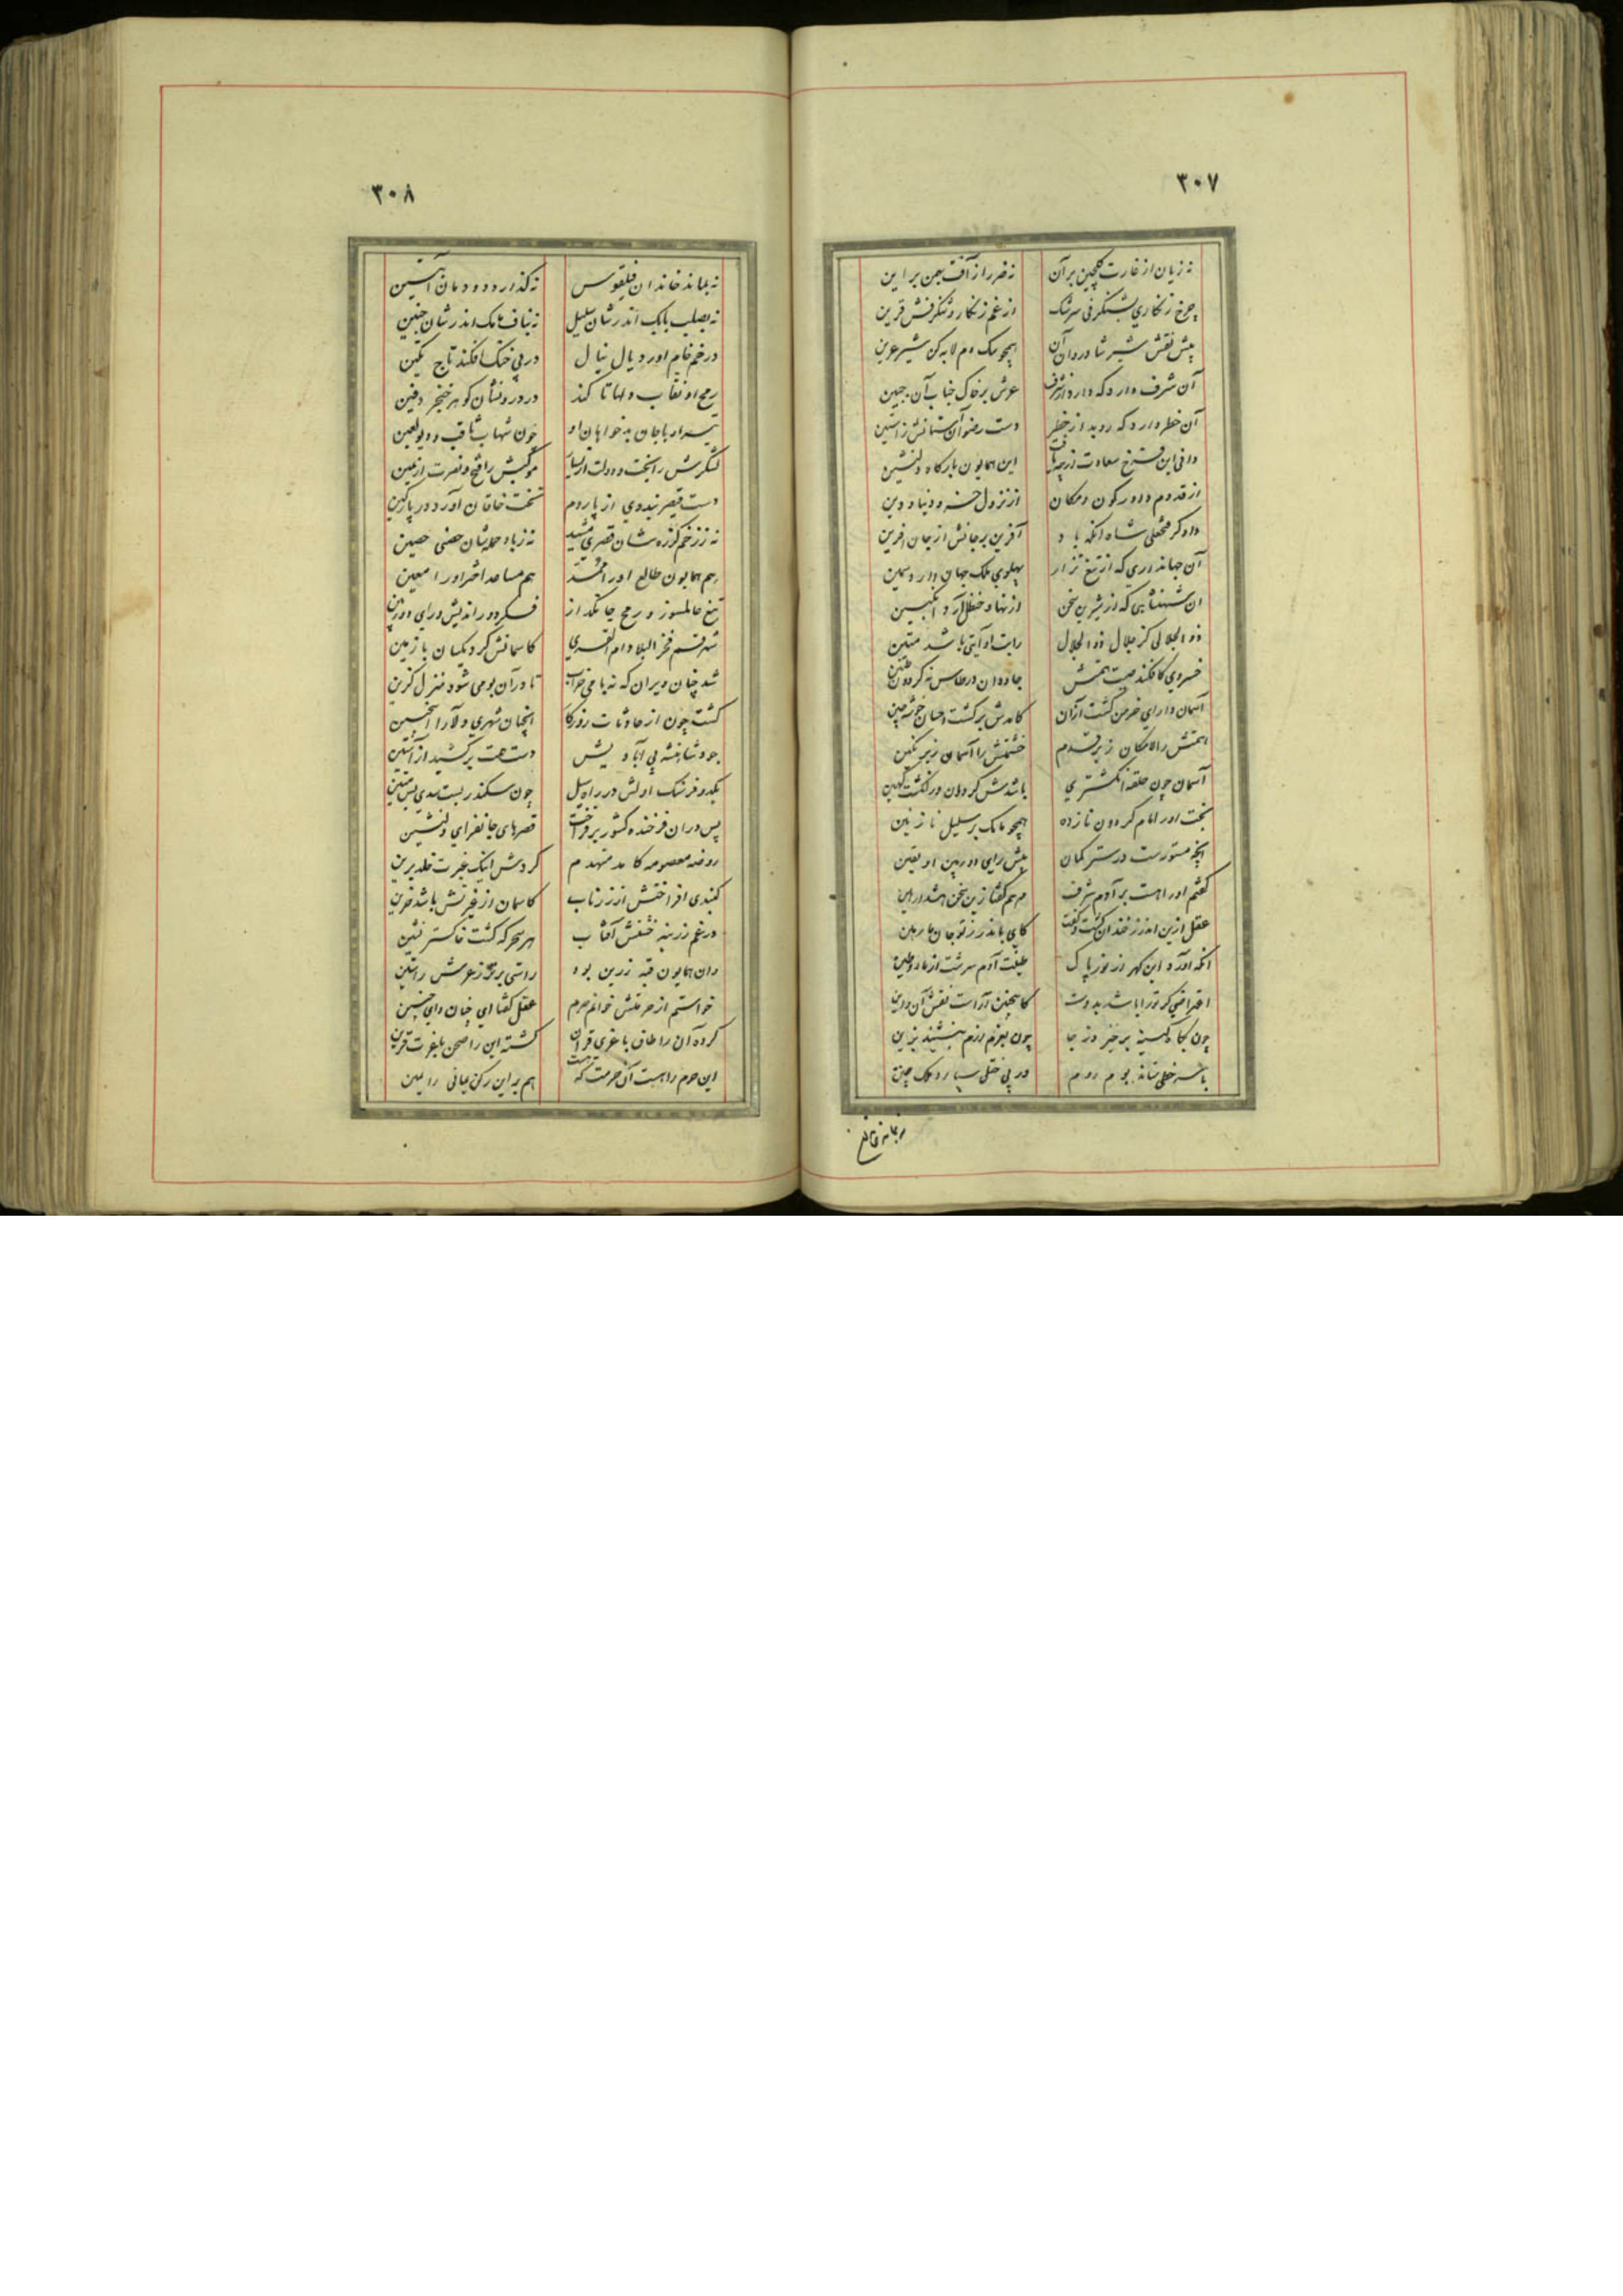 ۳۰۷
نه زیان از غارت گلچین بر آن نه ضرر از آفت بهمن بر این
چرخ زنگاری بشنگرفی سرشک از غم زنگار و شنگرفش قرین
پیش نقش شیر شادروان آن همچو سک دم لابه کن شیر عرین
آن شرف دارد که دارد از شرف عرش بر خاک جناب آن جبین
آن خطر دارد که روبد از خطر دست رضوان آستانش ز آستین
این همایون بارگاه دلنشین
از قدوم داور کون و مکان از نزول خسرو دنیا و دین
دادگر فتحعلی شاه آنکه باد آفرین بر جانش از جان آفرین
آن جهانداری که از تیغ نزار پهلوی ملک جهان دارد سمین
آن شهنشاهی که از شیرین سخن از نهاد حنظل آرد انگبین
ذو الجلالی کز جلال ذو الجلال رایت او آیتی باشد متین
خسروی کافکند صیت همتش جاودان در طاس نه گردون طنین
آسمان دارای خرمن گشت ازان کامدش بر کشت احسان خوشه چین
همتش را لامکان زیر قدم حشمتش را آسمان زیر نگین
آسمان چون حلقه انگشتری باشدش گردان در انگشت کهین
بخت او را مام گردون نازده همچو مامک بر سلیل نازنین
آنچه مستورست در ستر گمان پیش رای دوربین او یقین
گفتم او را هست بر آدم شرف
عقل ازین اندرز خندان گشت و گفت کای بماند
آنکه آورد این گهر از نور پاک طینت آدم سرشت از ماء و طین
نقش آن و این
چون بگاه کینه برخیزد ز جا چون بعزم رزم بنشیند بزین
با سر خطی ستاند بوم روم در پی خطی سپارد ملک چین
۳۰۸
نه بماند خاندان فیلقوس نه گذارد دودمان آبتین
نه بصلب بابک اندرشان سلیل نه بناف مامک اندرشان جنین
در خم خام آورد یال نیال در پی خنک افکند تاج تکین
رمح او نقاب دلها تا کند در درونشان گوهر خنجر دفین
تیر او با جان بدخواهان او چون شهاب ثاقب و دیو لعین
لشکرش را بخت و دولت از یسار موکبش را فتح و نصرت از یمین
دست قیصر بندد وی از پاردم تخت خاقان آورد
نه ز زخم گرزه شان قصری مشید نه ز باد حمله شان حصنی حصین
هم همایون طالع او را ممد هم مساعد اختر او را معین
تیغ عالمسوز و رمح جانگداز فکر دور اندیش و رای دوربین
شهر قم فخر البلاد ام القری کاسمانش کرد یکسان با زمین
شد چنان ویران که نه بامی خراب تا در آن بومی شود منزل گزین
گشت چون از حادثات روزگار آنچنان شهری دلارا اینچنین
جود شاهنشه پی آبادیش دست همت بر کشید از آستین
یکدو فرسنگ اولش در راه سیل چون سکندر بست سدی بس متین
پس در ان فرخنده کشور برفراخت قصرهای جانفزای دلنشین
روضه معصومه کامد منهدم کردش اینک غیرت خلد برین
گنبدی افراختش از زر ناب کاسمان از غیرتش باشد حزین
در غم زرینه خشتش آفتاب هر سحرگه گشت خاکستر نشین
زان همایون قبه زرین بود راستی بر توز عرش راستین
خواستم از حرمتش خوانم حرم عقل گفتا ای چنان و ای چنین
کرده آن را طاق با عزی قران گشته این را صحن با عزت قرین
این حرم را هست آن حرمت که هست هم بر این رکن یمانی را یمین